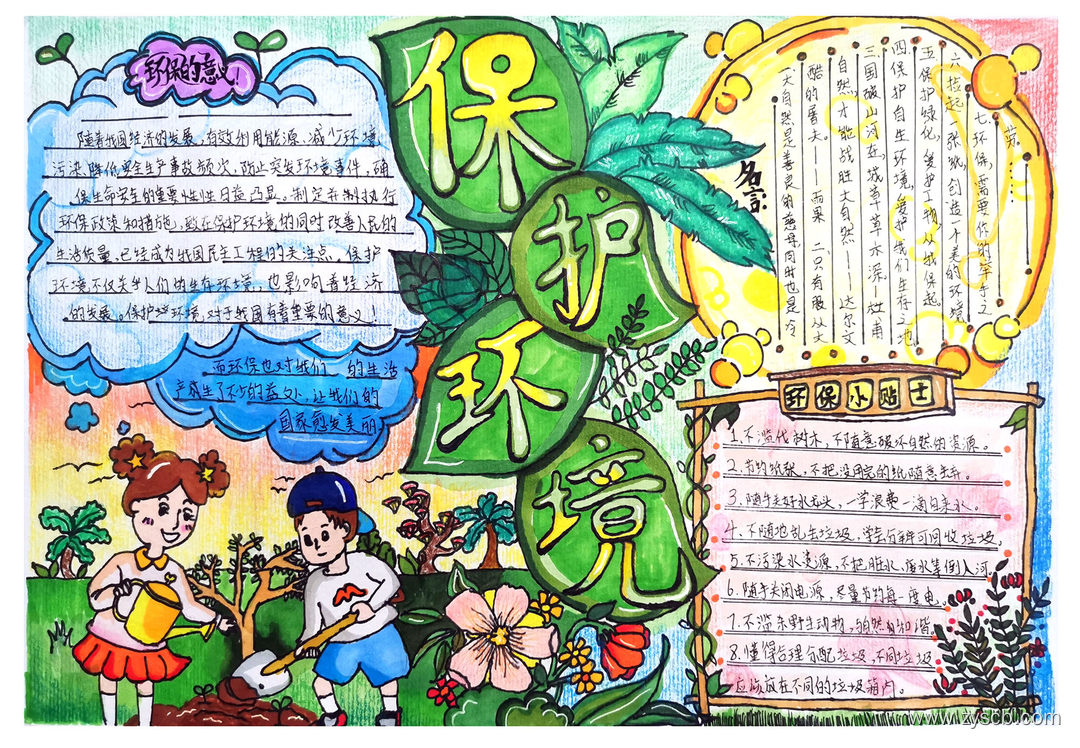 保护环境
环保的意义
随着我国经济的发展,有效利用能源,减少环境
污染,降低安全生产事故频次,防止突发环境事件,确
保生命安全的重要性性日益凸显。制定并制执行
环保政策和措施,致在保护环境的同时改善人民的
生活质量,已经成为我国民生工程的关注点。保护
环境不仅关乎人们的生存环境,也影响着经济
的发展。保护环境,对于我国有着重要的意义!
而环保也对我们 的生活
产生了不少的益处,让我们的
国家愈发美丽
名言:
一大自然是善良的慈母,同时也是冷
酷的屠夫——雨果 二只有服从大
自然,才能战胜大自然——达尔文
三国破山河在,城草草木深。杜甫
四保护自生环境,爱护我们生存之地
五保护绿化,爱护工物,从我保起。
六捡起一张纸,创造一个美的环境
七环保,需要你的举手之
劳。……
环保小贴士
1.不滥伐树木,不随意破坏自然的资源。
2.节约纸张,不把没用完的纸随意丢弃。
3.随手关好水龙头,一学浪费一滴自来水。
4.不随地乱生垃圾,学会分类可回收垃圾。
5.不污染水资源,不把脏水,废水等倒入河。
6.随手关闭电源,尽量节约每一度电。
7.不滥杀野生动物,与自然和谐。
8.懂得合理分配垃圾,不同垃圾
应该放在不同的垃圾箱内。
www.zyscbl.com